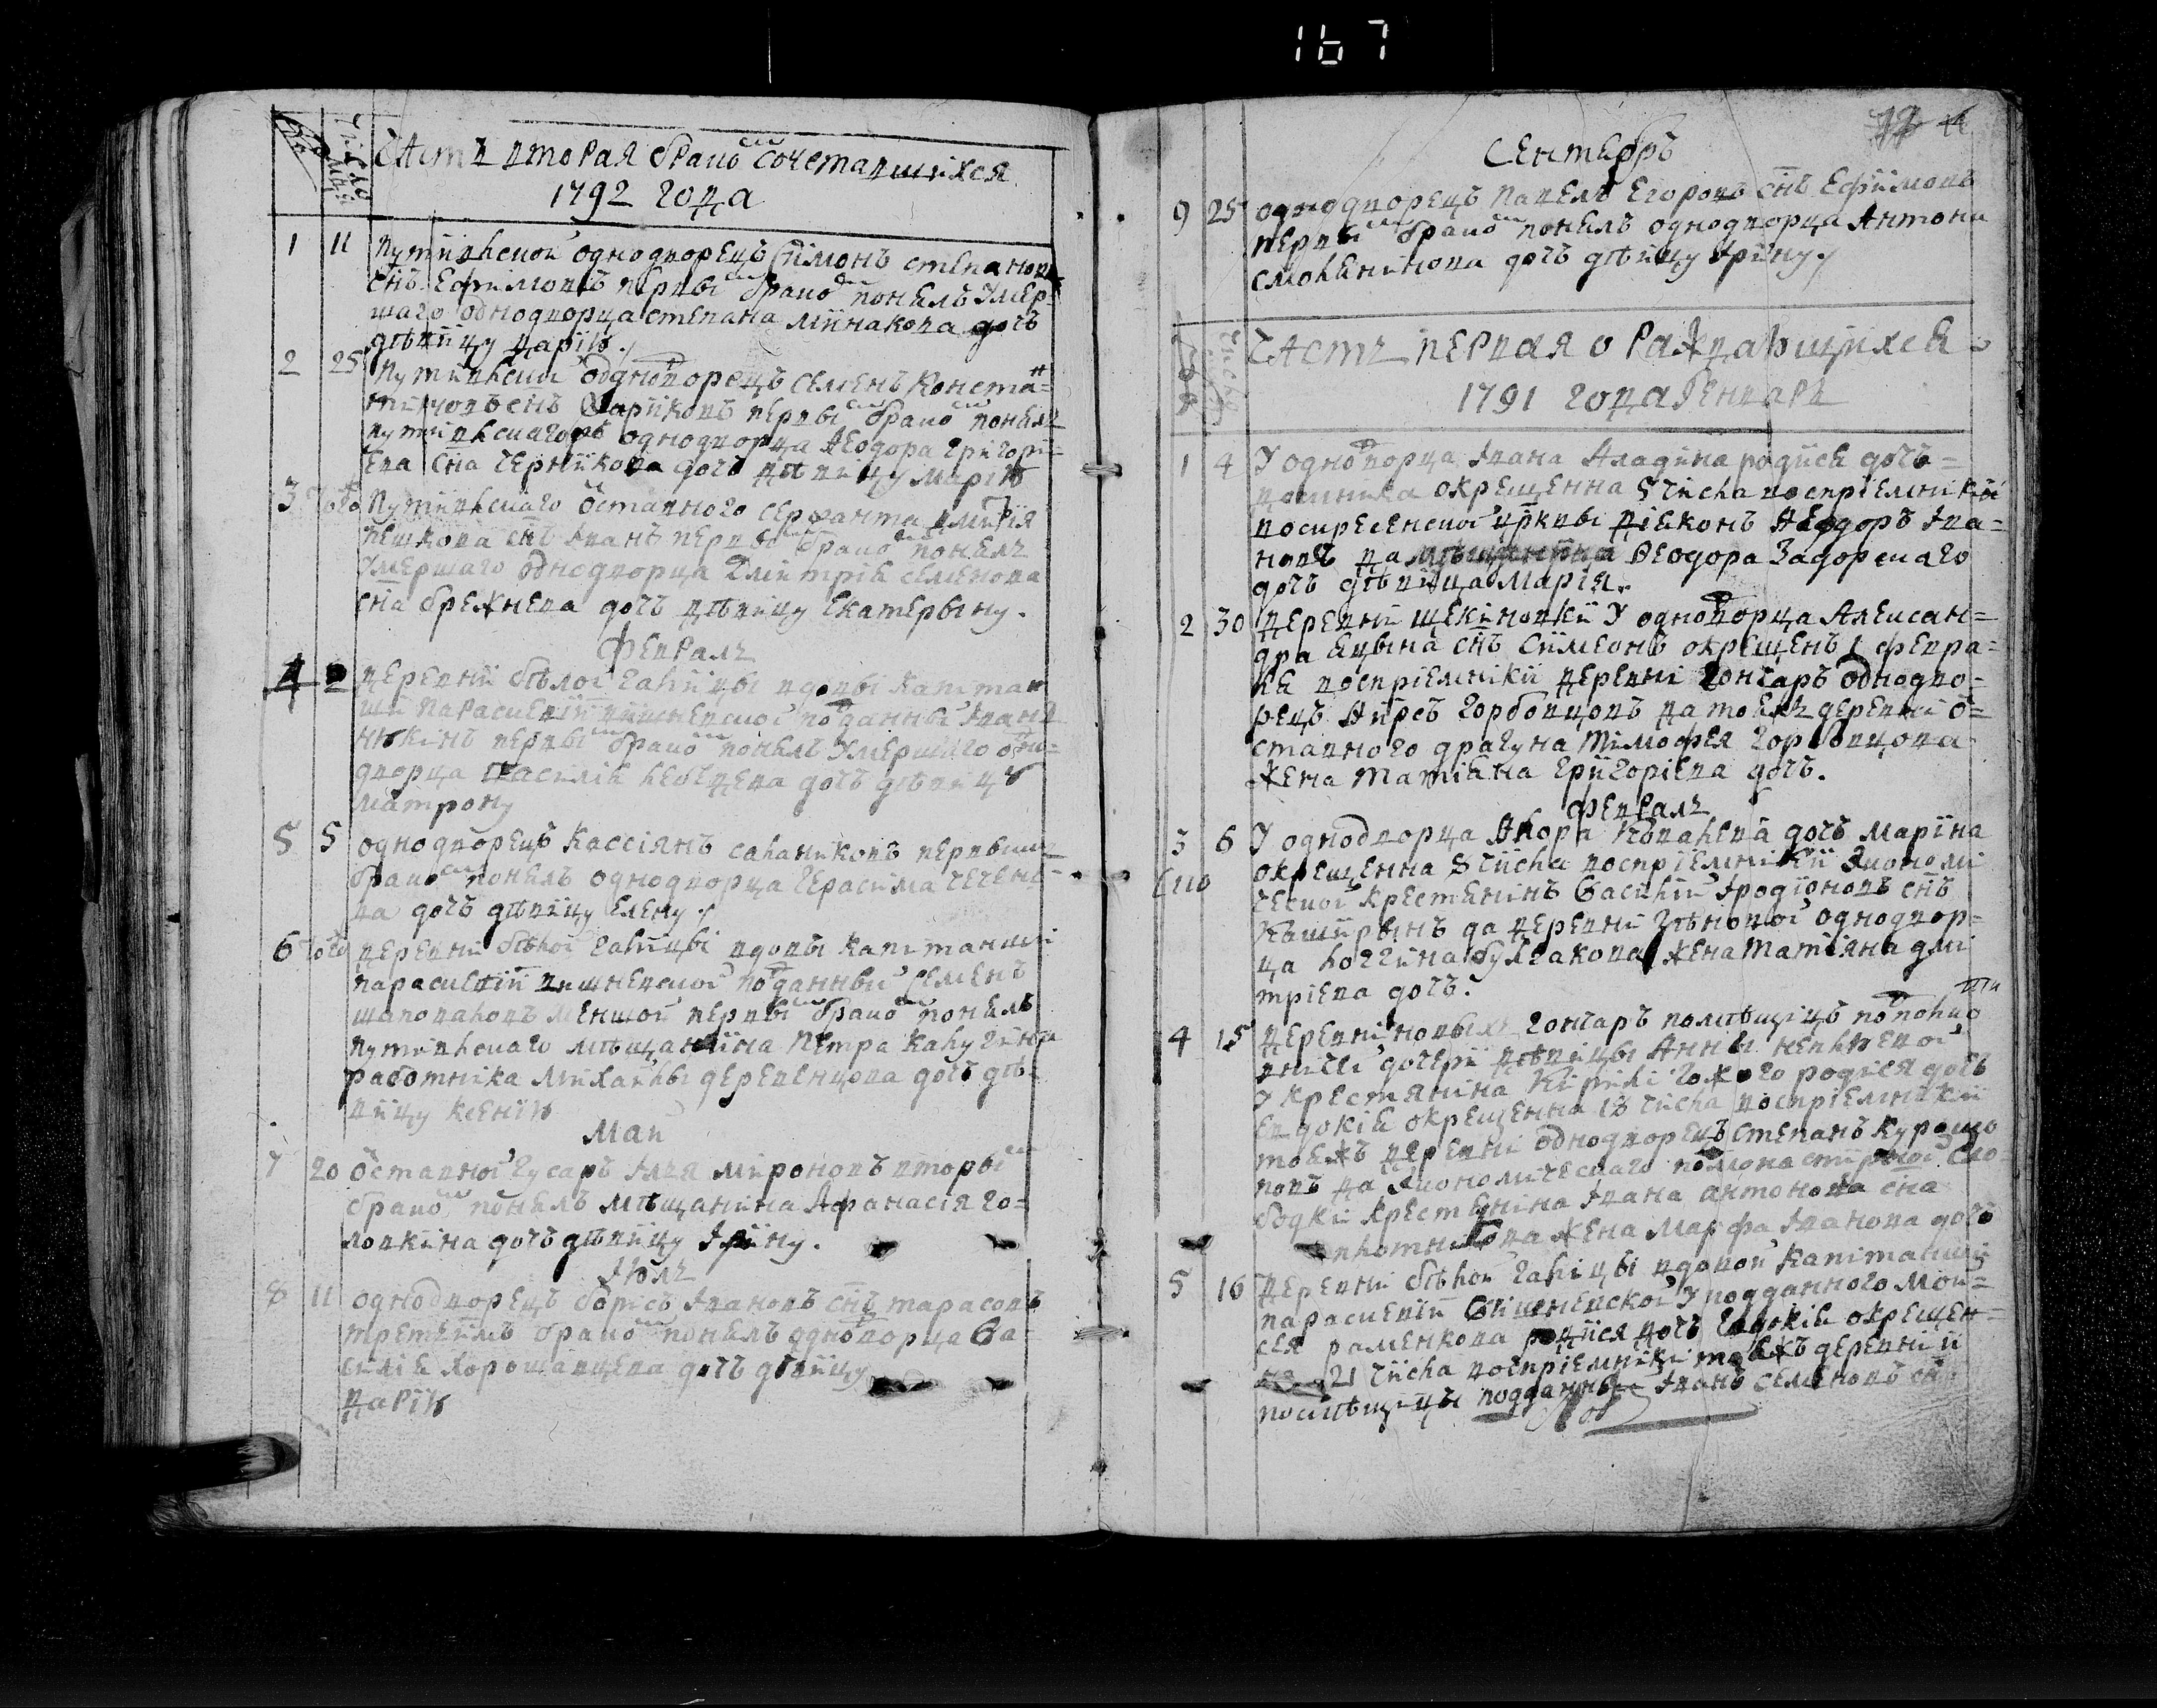 167
Число
Часть вторая бракомъ сочетавшихся
1792 года
1 11 путивлской однодворецъ Симонъ степановъ
снъ Ефимовъ первымъ бракомъ понялъ умер=
шаго однодворца степана минакова дочь
дѣвицу дарію
2 25 Путивлской однодворецъ семенъ Конста=
тиновъ снъ первымъ бракомъ понялъ
путивлскагожъ однодворца Ѳеодора григорі=
ева сна черникова дочь дѣвицу марію
3 Путивлскаго отставного сержанта дмитрія
пешкова снъ Іванъ первымъ бракомъ понялъ
умершаго однодворца Дмитрія семенова
сна брежнева дочь дѣвицу екатерыну.
Февраль
4 деревни бѣлой галицы вдовы капитан
ши параскевіи вишневской подданный Іванъ
первымъ бракомъ понялъ умершаго одно=
дворца василія лебедева дочь дѣвицу
матрону
5 5 однодворецъ Кассіянъ салниковъ первымъ
бракомъ понялъ однодворца герасима
ва дочь дѣвицу елену
6 того деревни бѣлой галицы вдовы капитанши
параскевіи вишневской подданный семенъ
шаповаловъ меншой первымъ бракомъ понялъ
путивлскаго мѣщанина петра калугина
работника михайлы деревенцова дочь дѣ=
вицу ксенію
маи
7 20 отставной гусаръ Ілія мироновъ вторымъ
бракомъ понялъ мѣщанина Афанасія го=
ловкина дочь дѣвицу Ірину.
Іюль
8 11 однодворецъ борисъ Івановъ снъ тарасовъ
третіимъ бракомъ понялъ однодворца Ва=
силія хорошавцева дочь дѣвицу
дарію
Сентябръ
9 25 однодворецъ павелъ Егоровъ снъ Ефимовъ
первымъ бракомъ понялъ однодворца Антона
смоленинова дочь дѣвицу Ірину
число
Часть первая о раждающихся
1791 года Генварь
1 4 У однодворца Івана Аладина родися дочь=
домника окрещенна 5 числа воспріемники
воскресенской цркви діаконъ Ѳеодоръ Іва=
новъ да Ѳеодора Задорскаго
дочь дѣвица Марія.
2 30 деревни щекиновки У однодворца Алексан=
дра снъ Симеонъ окрещенъ 1 февра=
ля воспріемники деревни гончаръ однодво=
рецъ горбовцовъ да тоежъ деревни о=
ставного драгуна тимофея горбовцова
жена татіяна григоріева дочь.
Февраль
3 6 У однодворца дочь марина
окрещенна 8 числа воспріемники Экономи
ческой крестянинъ Василій Іродіоновъ снъ
Кашірынъ да деревни однодвор=
ца логгина булгакова жена татіяна дми
тріева дочь.
4 15 деревни новыхъ гончаръ помѣщицы подполко
вничей дочери дѣвицы Анны
у крестянина родися дочь
евдокія окрещенна 18 числа воспріемники
тоежъ деревни однодворецъ степанъ курашо
вовъ да экономическаго подмонастирной сло
бодки крестянина Івана антонова сна
жена марфа Іванова дочь
5 16 деревни бѣлой галицы вдовой капитанши
параскевіи Вишневской У подданного мои=
сея раменкова родися дочь Евдокія окрещен=
на 21 числа воспріемники тояжъ деревни и
помѣщицы подданный Іванъ семеновъ снъ